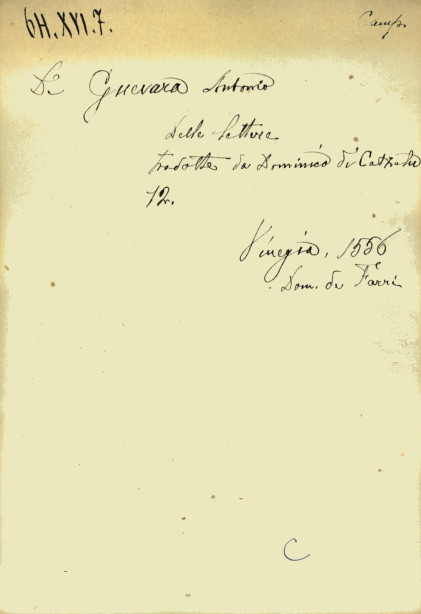 6H.XVI.7.
Camp.
De Guevara Antonio
Delle Lettere
tradotte da Dominico di Catzelu
12.
Vinegia, 1556
Dom. de Farri
C